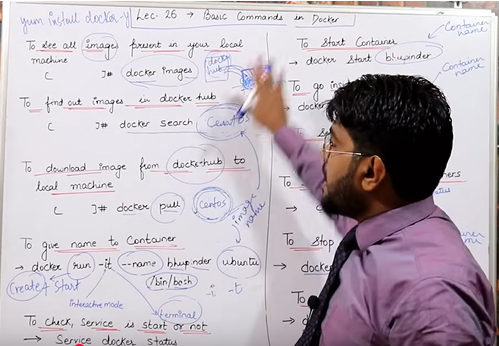 yum install docker -y
Lec-26 → Basic Commands in Docker
To see all images present in your local
machine
[ ]# docker images
docker
hub
To find out images in docker hub
[ ]# docker search Centos
To download image from docker-hub to
local machine
[ ]# docker pull centos
image
name
To give name to Container
→ docker run -it --name bhupinder ubuntu
/bin/bash
Create + Start
interactive mode
-i -t
terminal
To check, Service is start or not
→ Service docker status
Container
name
To Start Container
→ docker start bhupinder
Container
name
To go
→ docker
To
→
To Stop
→ docker
To
→